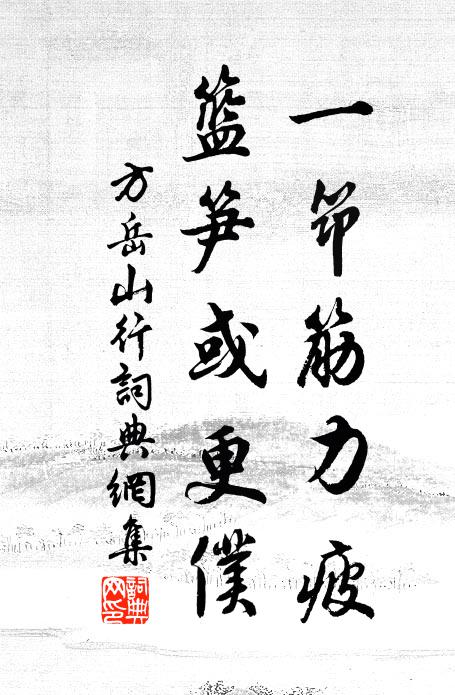 一筇筋力疲
籃笋或更僕
方岳山行詞典網集
詞典网印